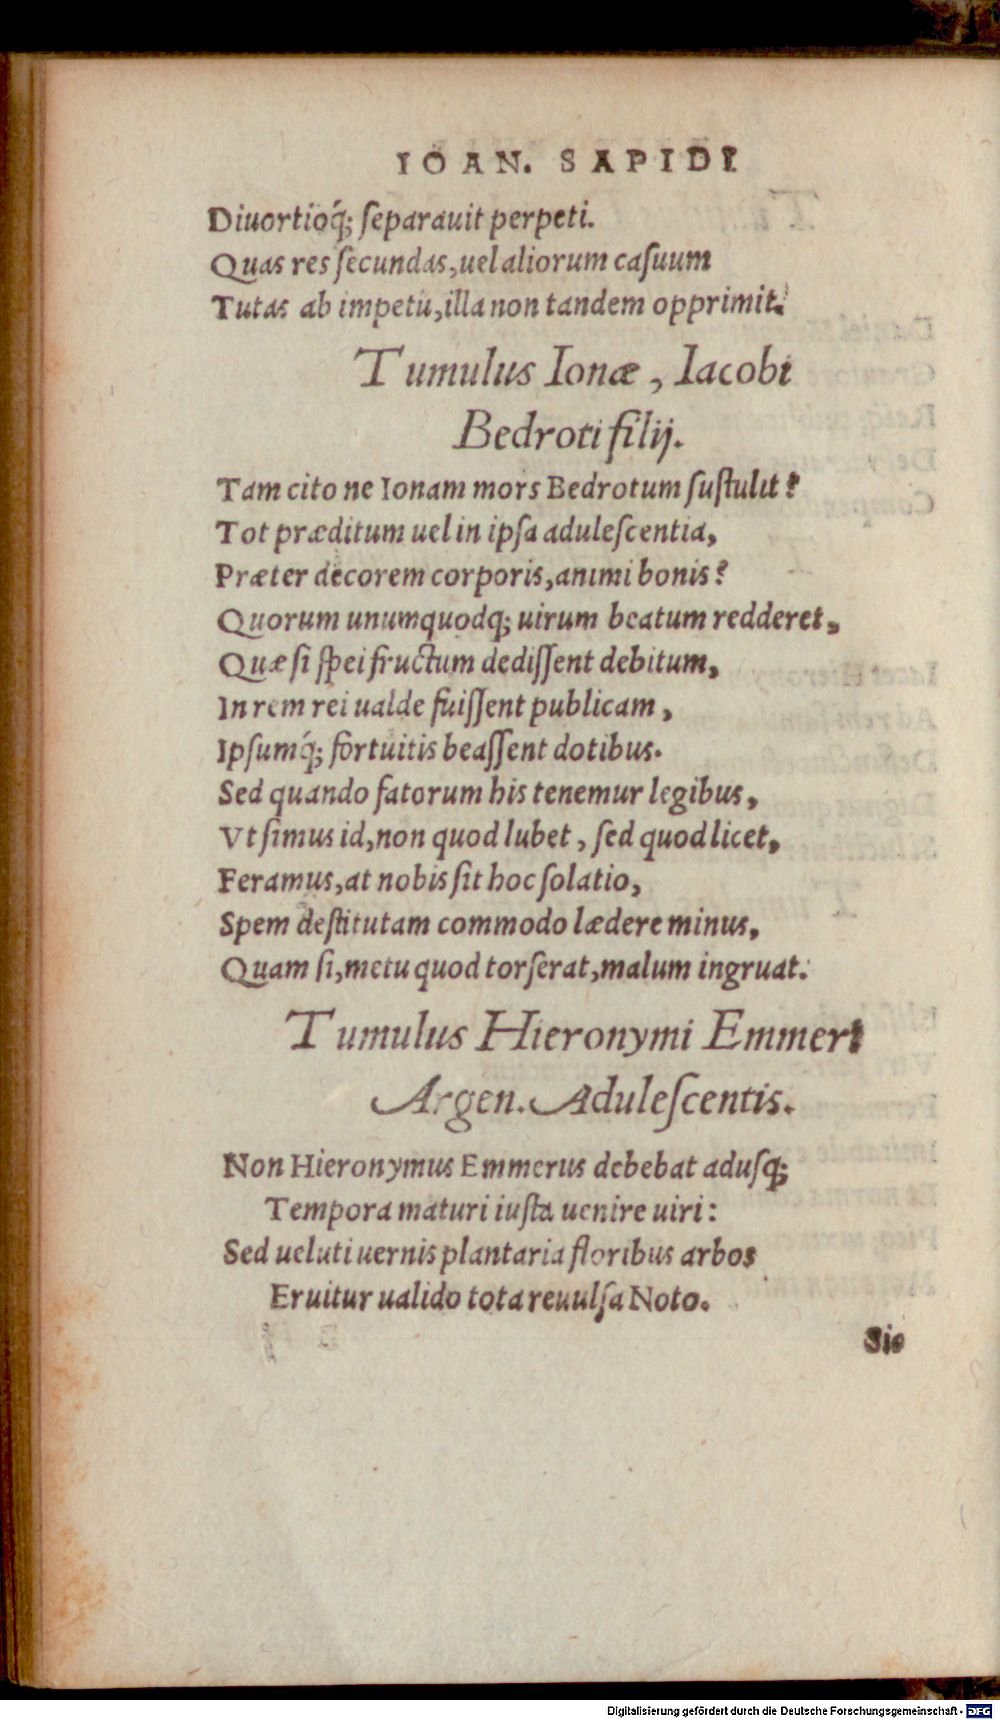 IOAN. SAPIDI
Diuortioq́; ſeparauit perpeti.
Quas res ſecundas, uel aliorum caſuum
Tutas ab impetu, illa non tandem opprimit.
Tumulus Ionæ, Iacobi
Bedroti filij.
Tam cito ne Ionam mors Bedrotum ſuſtulit?
Tot præditum uel in ipſa aduleſcentia,
Præter decorem corporis, animi bonis?
Quorum unumquodq; uirum beatum redderet,
Quæ ſi ſpei fructum dediſſent debitum,
In rem rei ualde fuiſſent publicam,
Ipſumq́; fortuitis beaſſent dotibus.
Sed quando fatorum his tenemur legibus,
Vt ſimus id, non quod lubet, ſed quod licet,
Feramus, at nobis ſit hoc ſolatio,
Spem deſtitutam commodo lædere minus,
Quam ſi, metu quod torſerat, malum ingruat.
Tumulus Hieronymi Emmeri
Argen. Aduleſcentis.
Non Hieronymus Emmerus debebat aduſq;
Tempora maturi iuſta uenire uiri:
Sed ueluti uernis plantaria floribus arbos
Eruitur ualido tota reuulſa Noto.
Sic
Digitalisierung gefördert durch die Deutsche Forschungsgemeinschaft - DFG